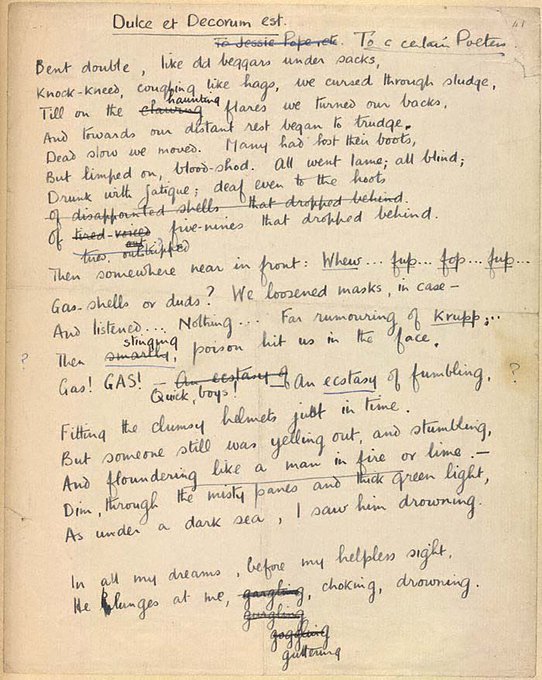 Dulce et Decorum est.
To Jessie Pope etc. To a certain Poetess.
Bent double, like old beggars under sacks,
Knock-kneed, coughing like hags, we cursed through sludge,
haunting
Till on the clawing flares we turned our backs,
And towards our distant rest began to trudge.
Dead slow we moved. Many had lost their boots,
But limped on, blood-shod. All went lame; all blind;
Drunk with fatigue; deaf even to the hoots
of disappointed shells that dropped behind.
Of tired-voiced five-nines that dropped behind.
tires, outstripped
Then somewhere near in front: Whew... fup... fop... fup...
Gas-shells or duds? We loosened masks, in case —
And listened.... Nothing.... Far rumouring of Krupp;...
stinging
? Then smartly, poison hit us in the face.
Gas! GAS! — An ecstasy of An ecstasy of fumbling, ?
Quick, boys!
Fitting the clumsy helmets just in time.
But someone still was yelling out, and stumbling,
And floundering like a man in fire or lime. —
Dim, through the misty panes and thick green light,
As under a dark sea, I saw him drowning.
In all my dreams, before my helpless sight,
He plunges at me, gargling, choking, drowning.
gurgling
goggling
guttering